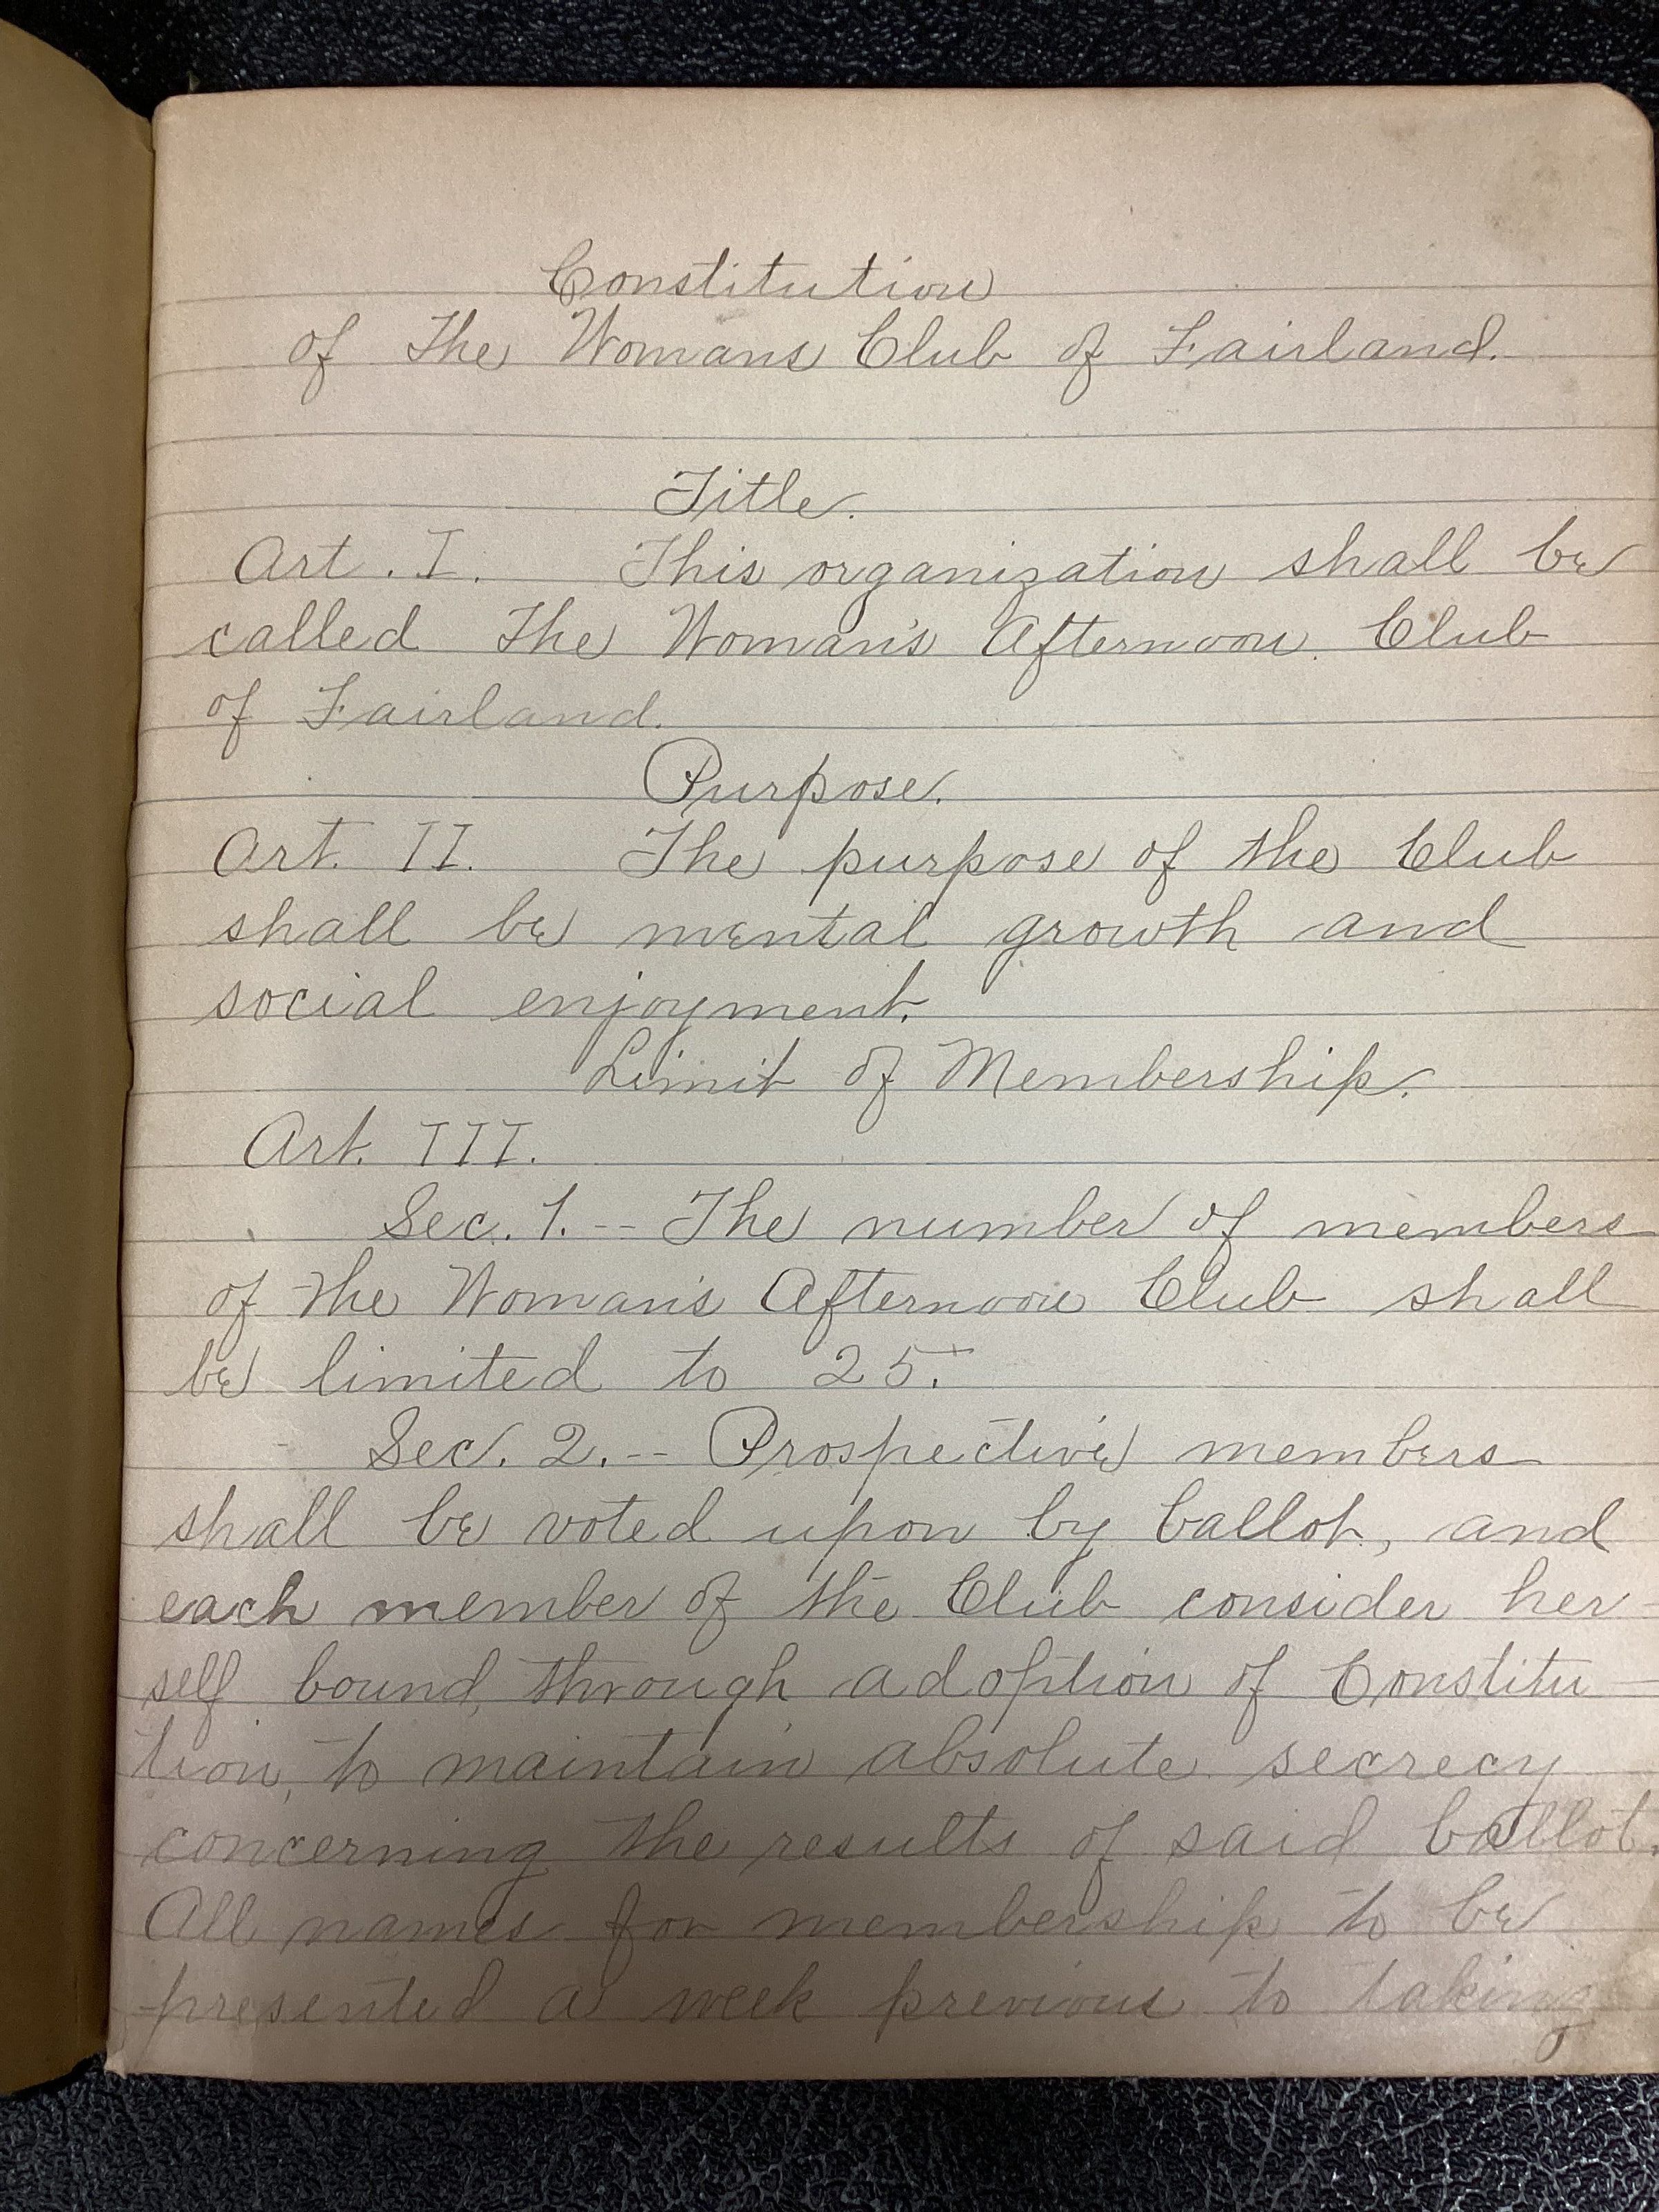 Constitution
of The Womans Club of Fairland.
Title.
Art. I. This organization shall be
called The Woman's Afternoon Club
of Fairland.
Purpose.
Art. II. The purpose of the Club
shall be mental growth and
social enjoyment.
Limit of Membership.
Art. III.
Sec. 1. -- The number of members
of the Woman's Afternoon Club shall
be limited to 25.
Sec. 2. -- Prospective members
shall be voted upon by ballot, and
each member of the Club consider her-
self bound, through adoption of Constitu-
tion, to maintain absolute secrecy
concerning the results of said ballot.
All names for membership to be
presented a week previous to taking